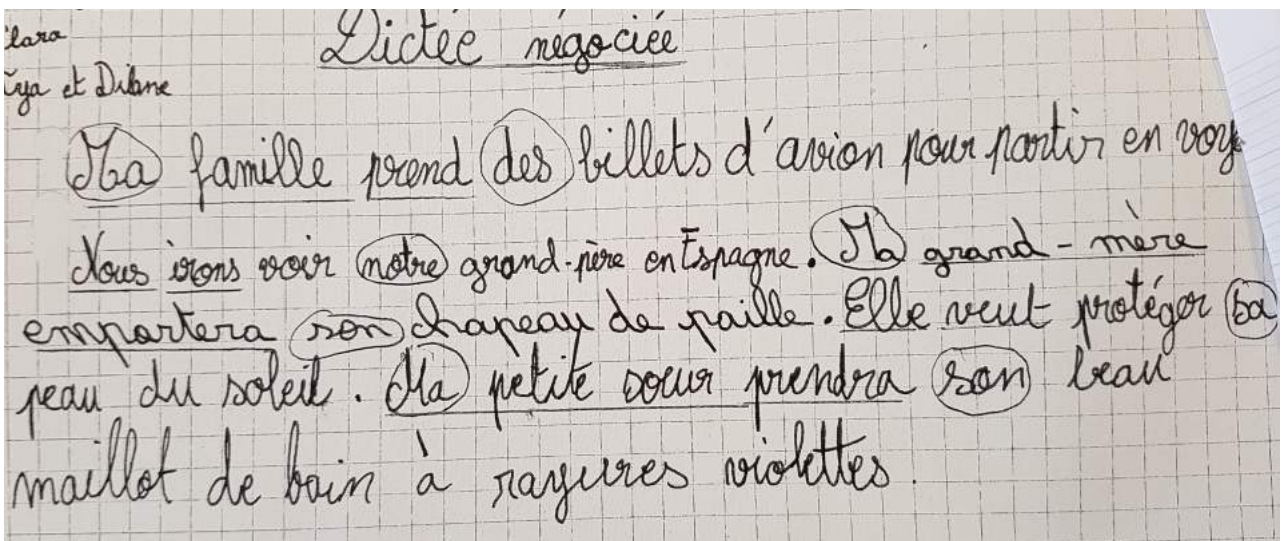 Dictée négociée
et Dilane
Ma famille prend des billets d'avion pour partir en
Nous irons voir notre grand-père en Espagne. Ma grand-mère
emportera son chapeau de paille. Elle veut protéger sa
peau du soleil. Ma petite soeur prendra son beau
maillot de bain à rayures violettes.